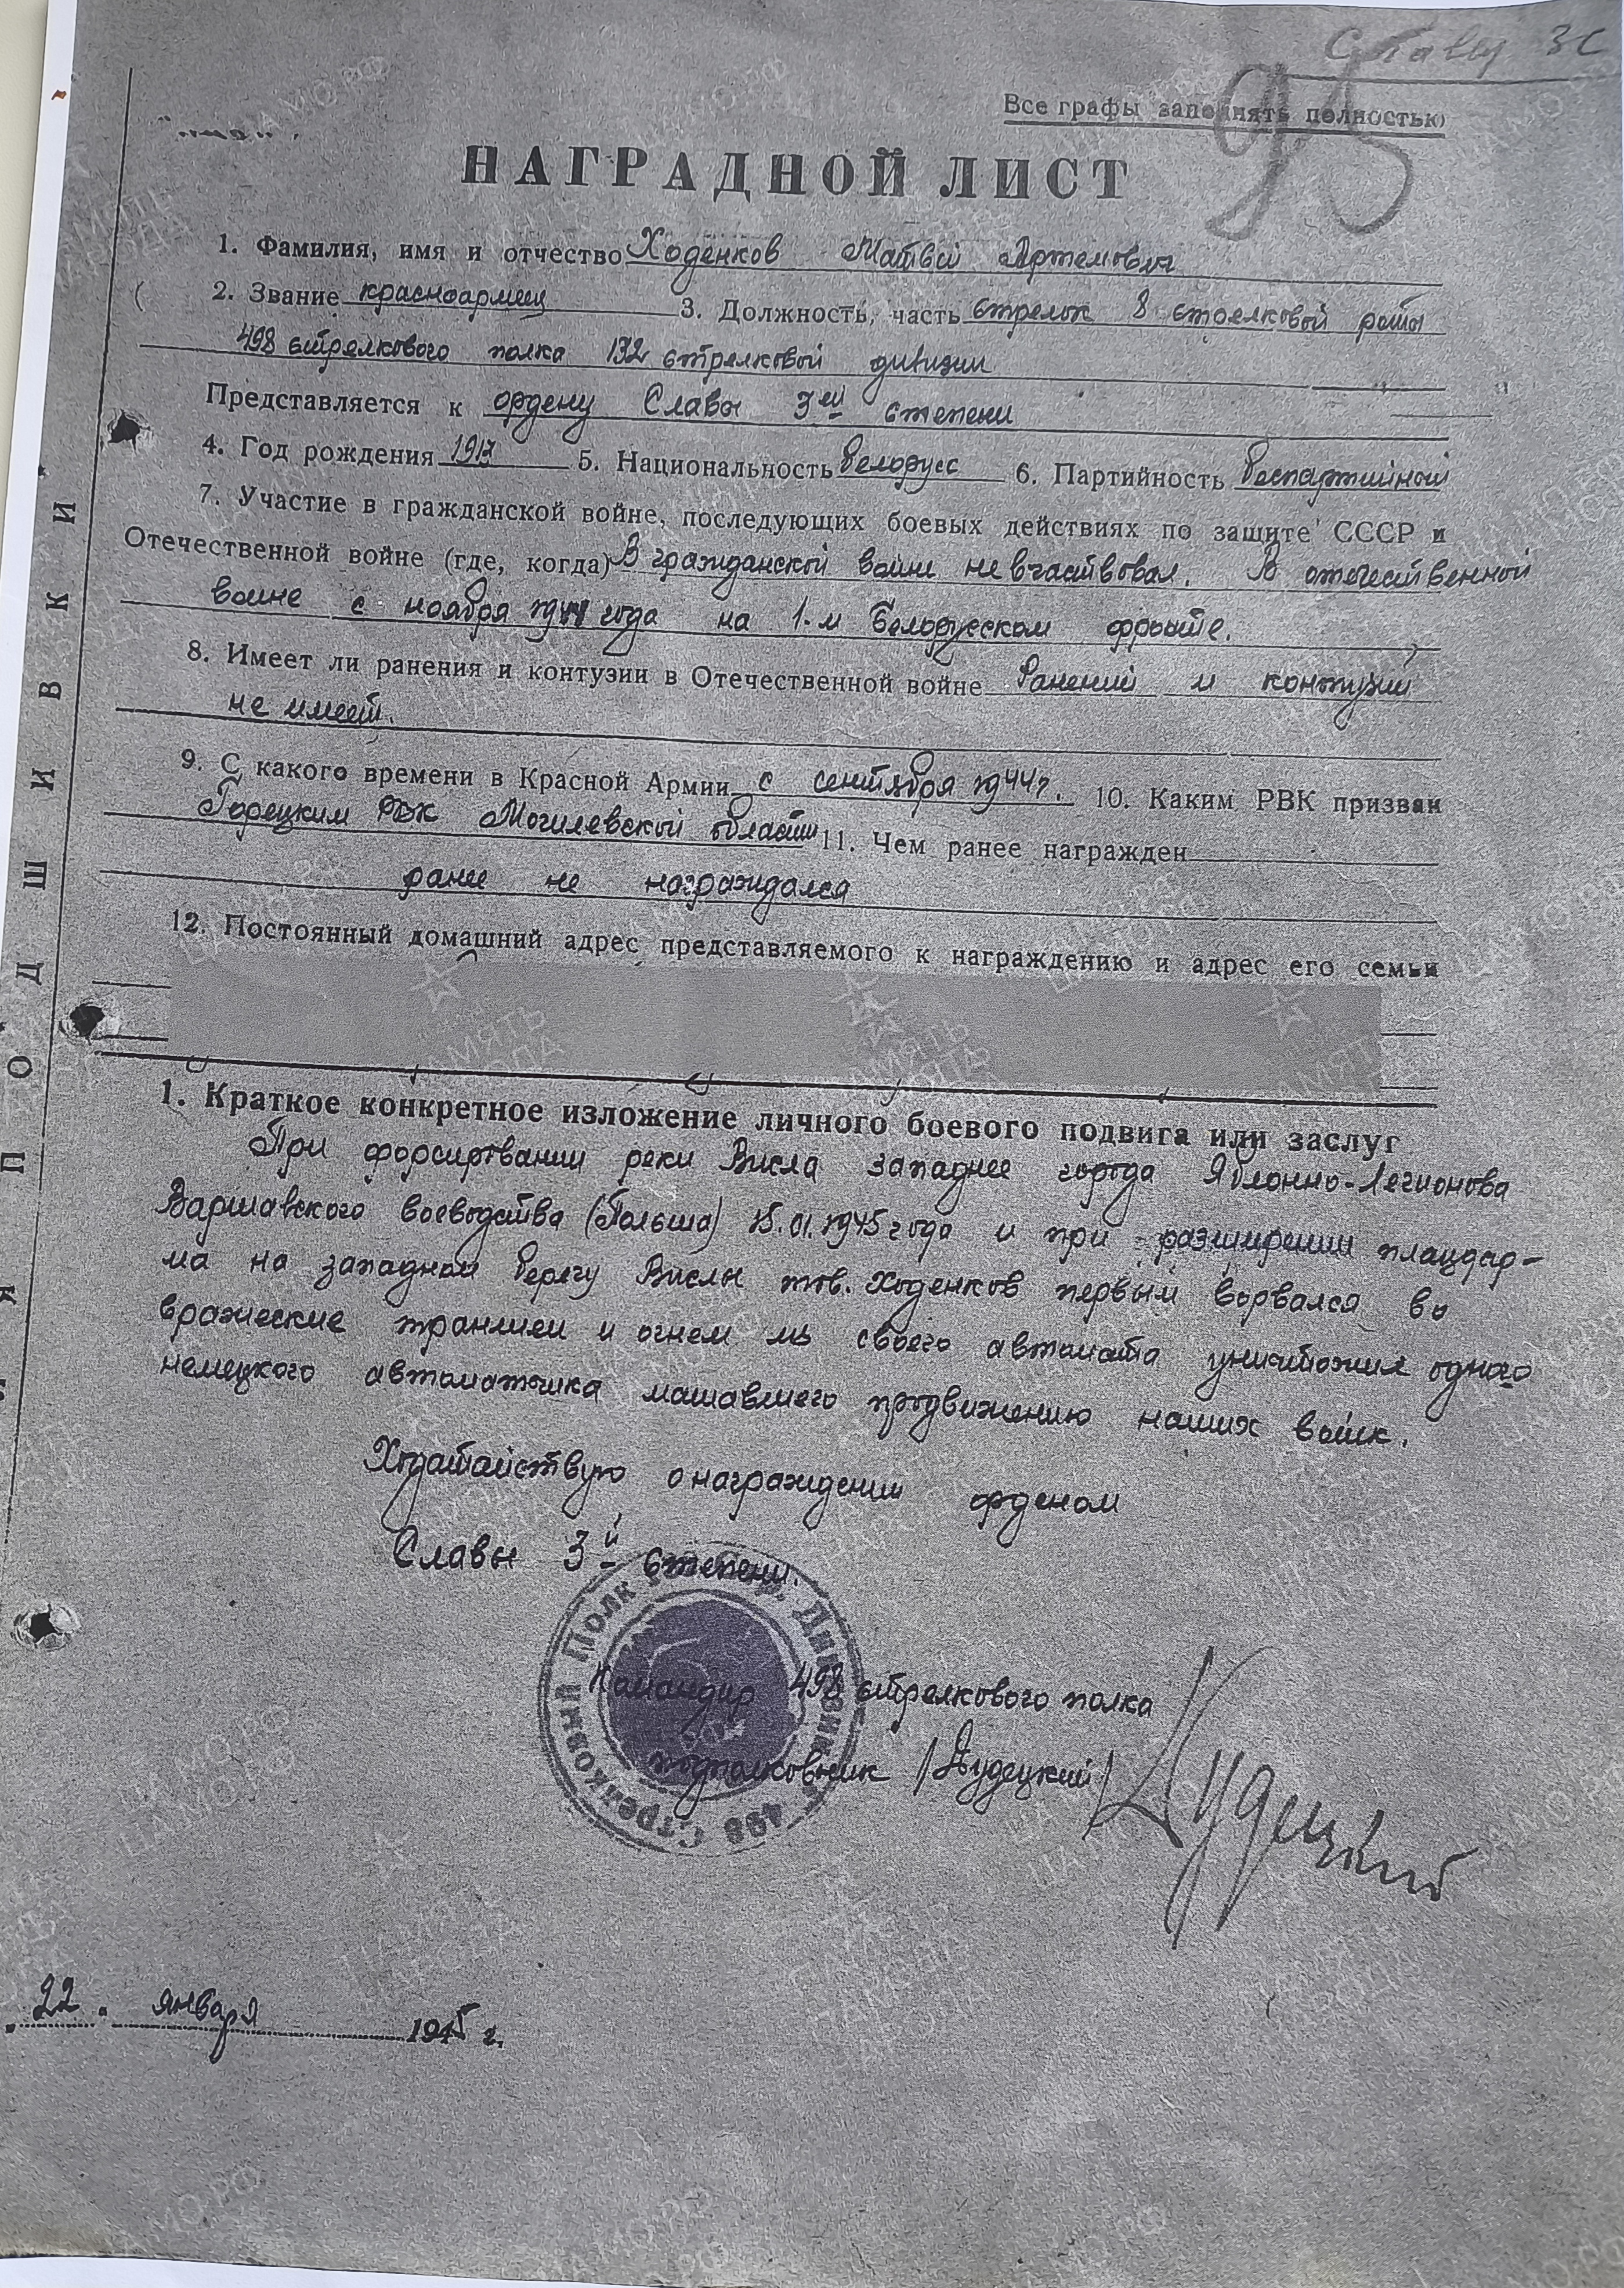 Славы 3С
95
Все графы заполнять полностью
НАГРАДНОЙ ЛИСТ
1. Фамилия, имя и отчество Ходенков Матвей Артемович
2. Звание красноармеец 3. Должность, часть стрелок 8 стрелковой роты
498 стрелкового полка 132 стрелковой дивизии
Представляется к ордену Славы 3ей степени
4. Год рождения 5. Национальность белорусс 6. Партийность беспартийный
7. Участие в гражданской войне, последующих боевых действиях по защите СССР и
Отечественной войне (где, когда) В гражданской войне не вчаствовал. В отечественной
войне с ноября 1944 года на 1-м Белорусском фронте.
8. Имеет ли ранения и контузии в Отечественной войне Ранений и контузий
не имеет.
9. С какого времени в Красной Армии с сентября 1944г. 10. Каким РВК призван
Горецким РВК Могилевской области 11. Чем ранее награжден
ранее не награждался
12. Постоянный домашний адрес представляемого к награждению и адрес его семьи
1. Краткое конкретное изложение личного боевого подвига или заслуг
При форсировании реки Висла западнее города Яблонно-Легионова
Варшавского воеводства (Польша) 15.01.1945 года и при расширении плацдар-
ма на западном берегу Вислы тов. Ходенков первым ворвался во
вражеские траншеи и огнем из своего автомата уничтожил одного
немецкого автоматчика мешавшего продвижению наших войск.
Ходатайствую о награждении орденом
Славы 3й степени.
Командир 498 стрелкового полка
подполковник /Кудецкий/ Кудецкий
498 Стрелковый Полк
22. января 1945 г.
ПОДШИВКИ
ЦАМО.РФ
ПАМЯТЬ НАРОДА